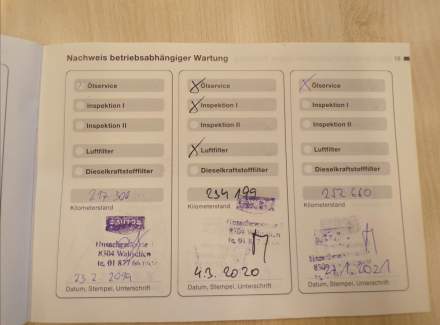 Nachweis betriebsabhängiger Wartung
Ölservice
Inspektion I
Inspektion II
Luftfilter
Dieselkraftstofffilter
Kilometerstand
8304
23.2.2019
Datum, Stempel, Unterschrift
X Ölservice
X Inspektion I
Inspektion II
X Luftfilter
Dieselkraftstofffilter
234 199
Kilometerstand
8304
4.3.2020
Datum, Stempel, Unterschrift
X Ölservice
Inspektion I
Inspektion II
Luftfilter
Dieselkraftstofffilter
252 660
Kilometerstand
27.1.2021
Datum, Stempel, Unterschrift